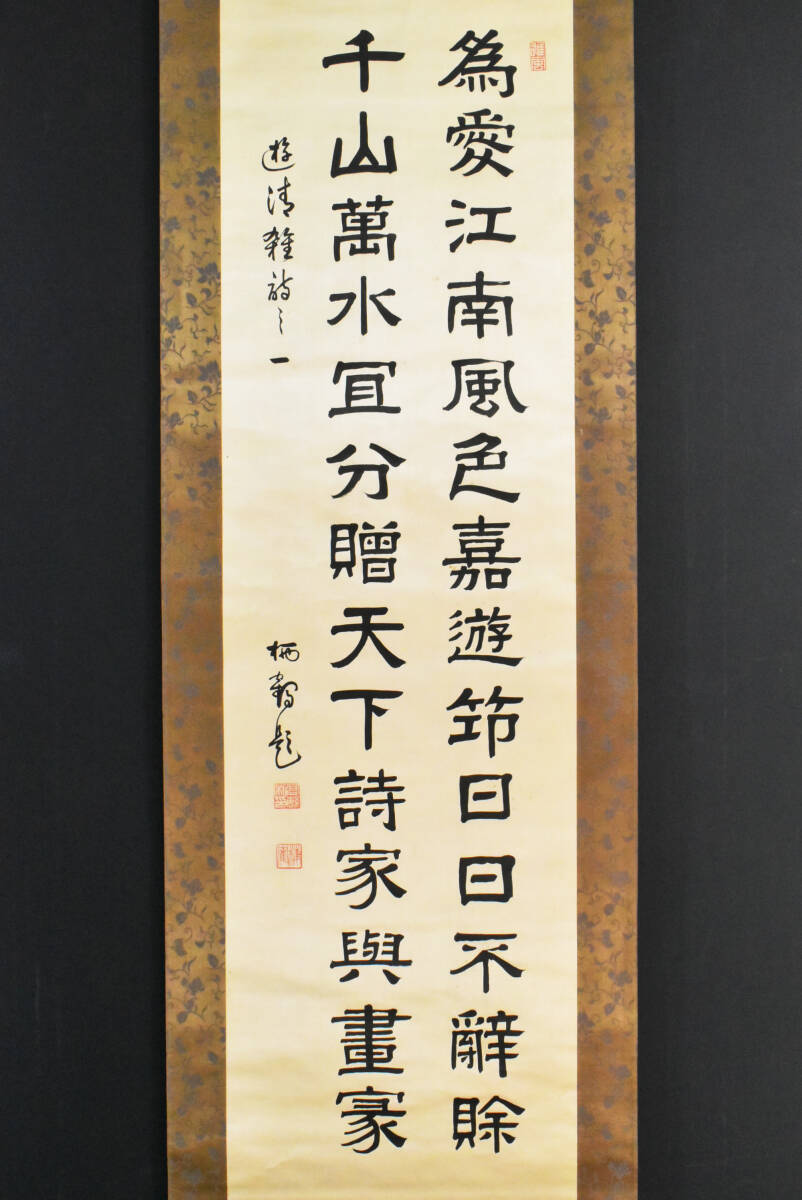 為愛江南風色嘉遊筇日日不辭賒
千山萬水宜分贈天下詩家與畫家
遊清雜詩之一
栖鶴題